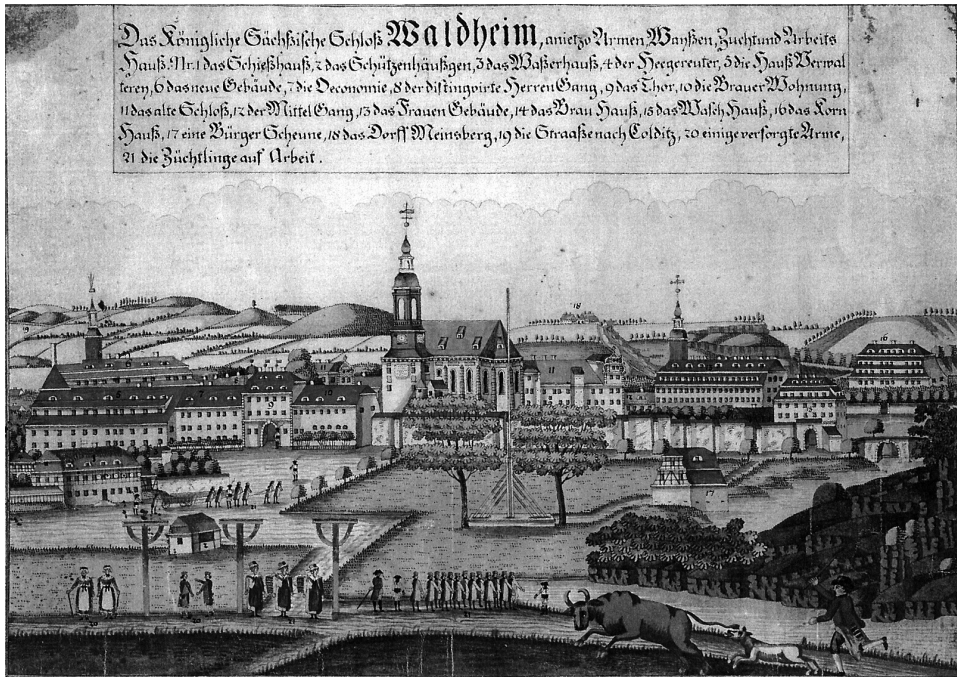 Das Königliche Sächsische Schloß Waldheim, anietzo Armen, Waysen, Zucht und Arbeits
Hauß. Nr. 1 das Schießhauß, 2 das Schützenhäußgen, 3 das Waßerhauß, 4 der Heegereuter, 5 die Hauß Verwal
terey, 6 das neue Gebäude, 7 die Oeconomie, 8 der distingvirte Herren Gang, 9 das Thor, 10 die Brauer Wohnung,
11 das alte Schloß, 12 der Mittel Gang, 13 das Frauen Gebäude, 14 das Brau Hauß, 15 das Wasch Hauß, 16 das Korn
Hauß, 17 eine Bürger Scheune, 18 das Dorff Meinsberg, 19 die Straaße nach Colditz, 20 einige versorgte Arme,
21 die Züchtlinge auf Arbeit.
18
19
16
11
7
10
17
20
20